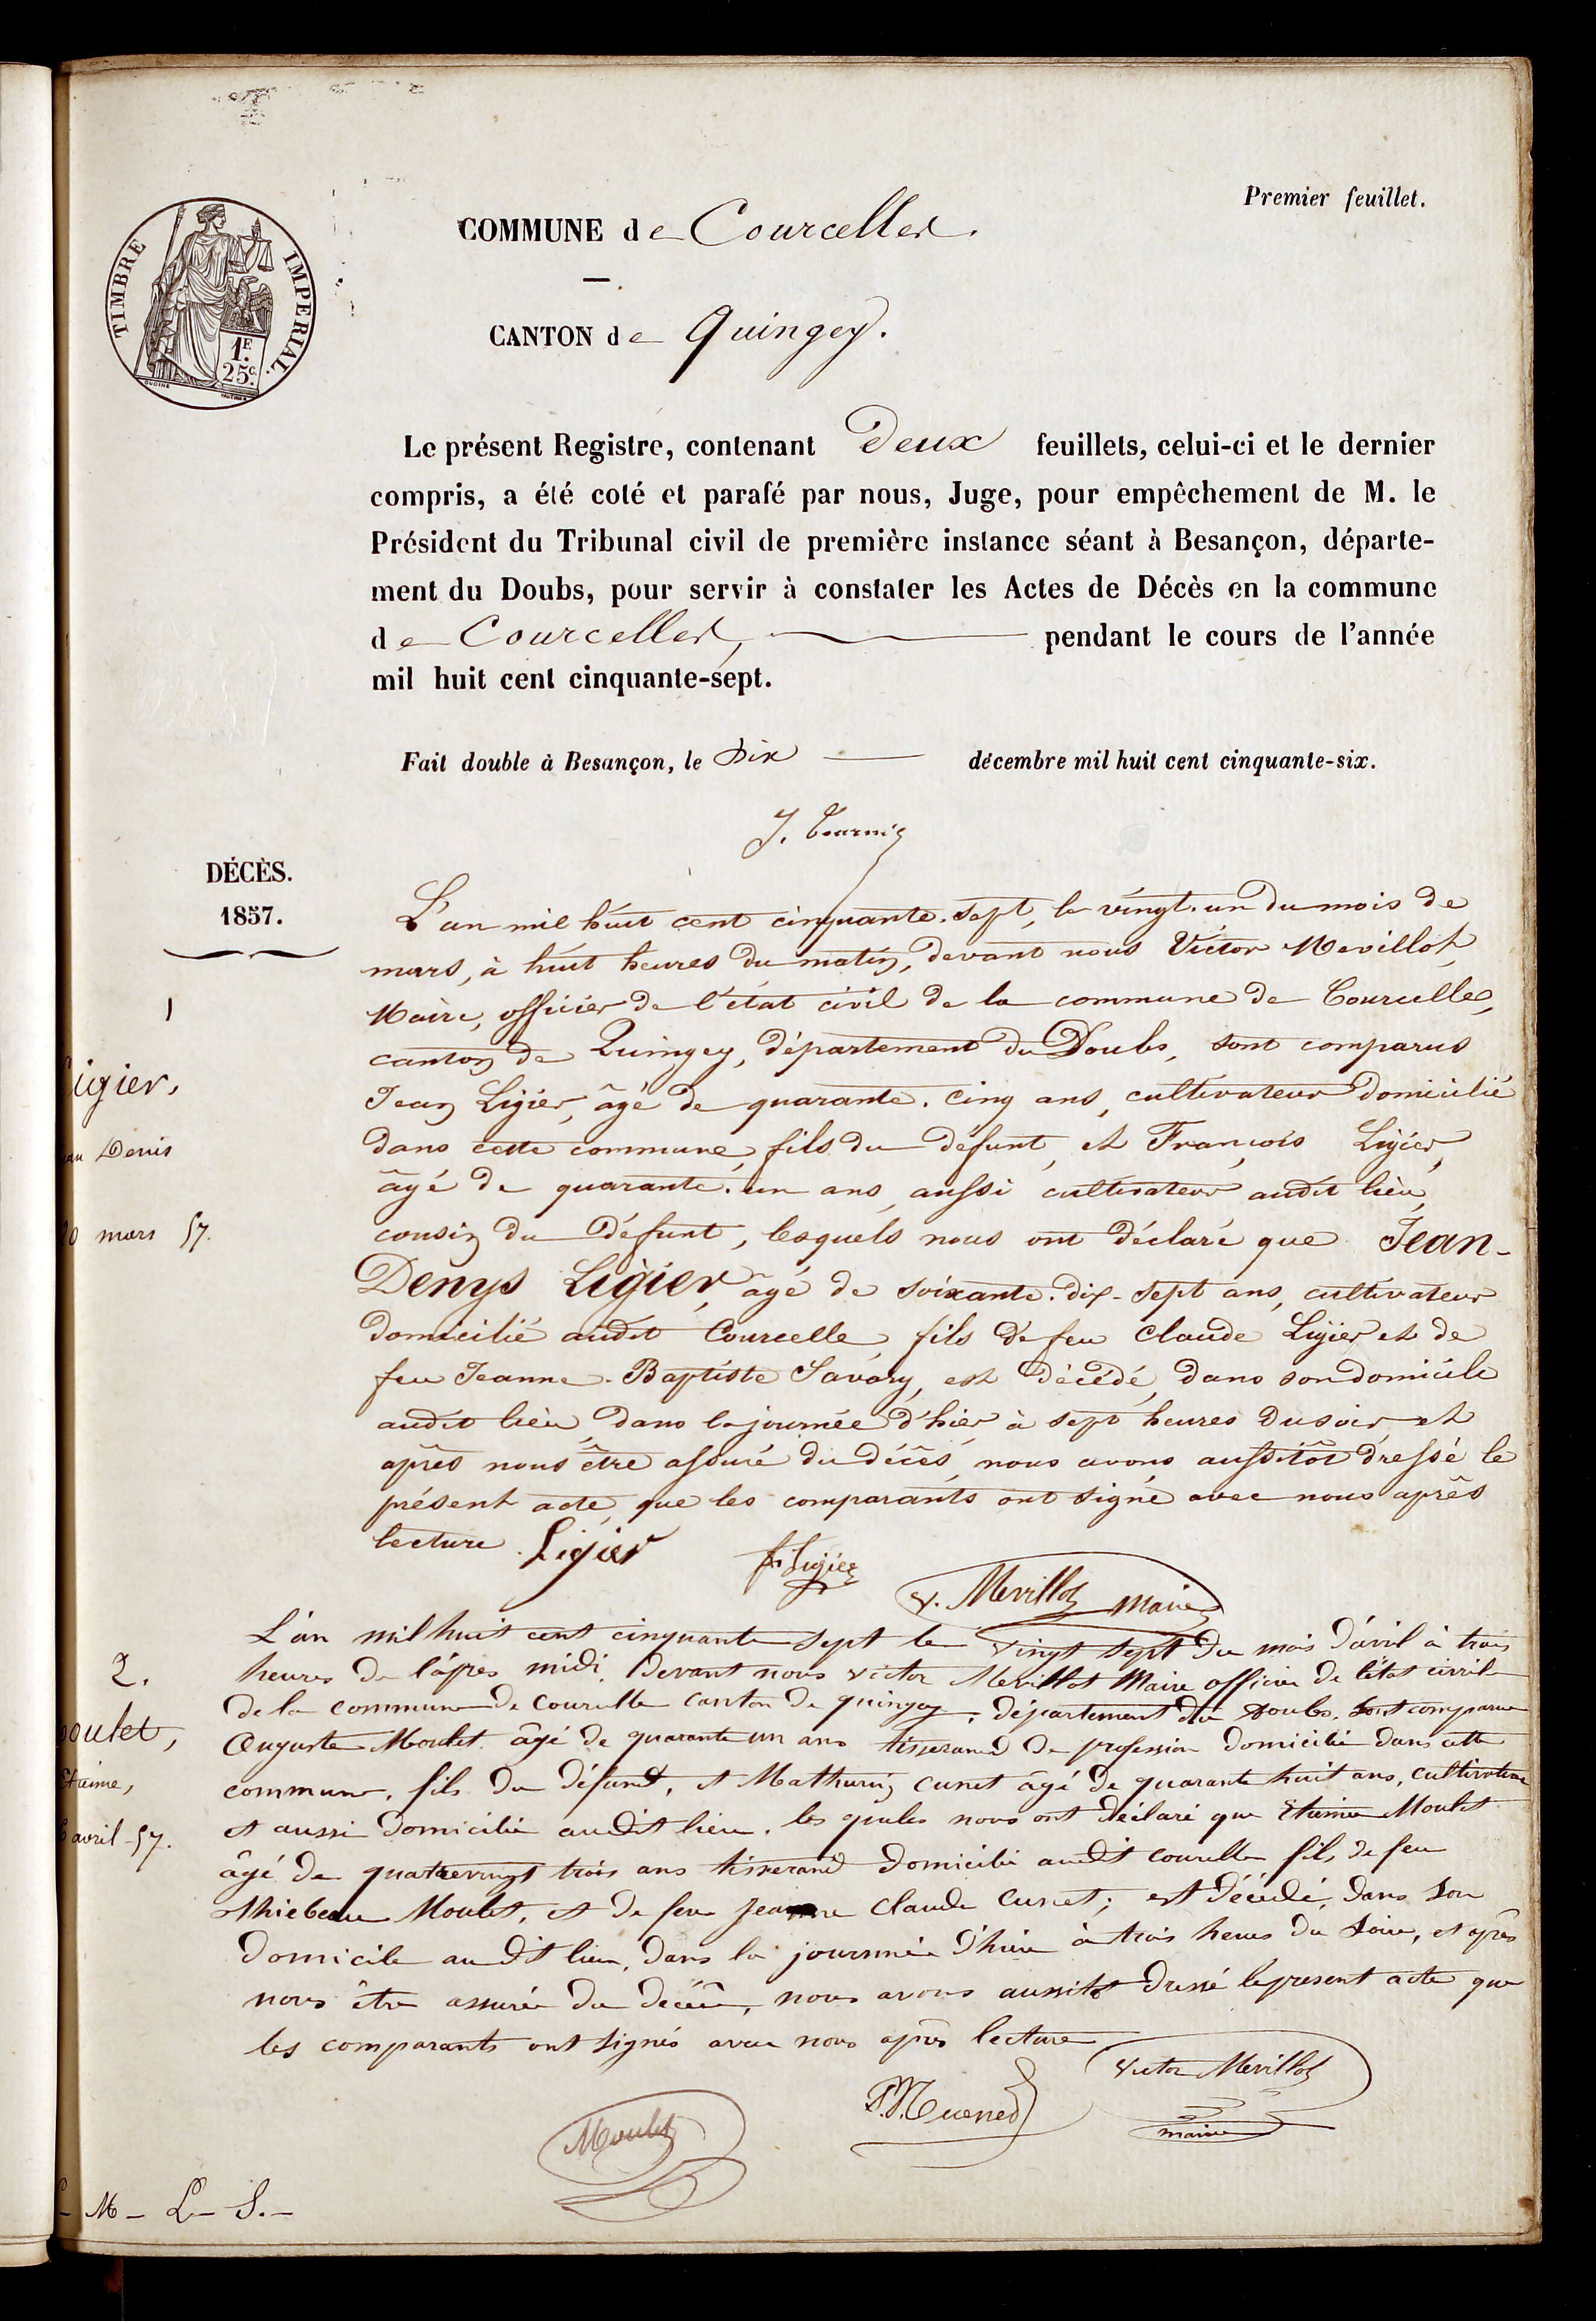 Premier feuillet.
TIMBRE IMPERIAL.
1F.
25c.
COMMUNE de Courcelles.
CANTON de Quingey.
Le présent Registre, contenant Deux feuillets, celui-ci et le dernier
compris, a été coté et parafé par nous, Juge, pour empêchement de M. le
Président du Tribunal civil de première instance séant à Besançon, départe-
ment du Doubs, pour servir à constater les Actes de Décès en la commune
de Courcelles, pendant le cours de l'année
mil huit cent cinquante-sept.
Fait double à Besançon, le dix décembre mil huit cent cinquante-six.
DÉCÈS.
1857.
1
Ligier,
Denis
mars 57.
L'an mil huit cent cinquante-sept, le vingt-un du mois de
mars, à huit heures du matin, devant nous Victor Mevillot,
Maire, officier de l'état civil de la commune de Courcelle,
canton de Quingey, département du Doubs, sont comparus
Jean Ligier, âgé de quarante-cinq ans, cultivateur domicilié
dans cette commune, fils du défunt, et François Ligier,
âgé de quarante-un ans, aussi cultivateur audit lieu,
cousin du défunt, lesquels nous ont déclaré que Jean-
Denys Ligier, âgé de soixante-dix-sept ans, cultivateur
domicilié audit Courcelle, fils de feu Claude Ligier et de
feu Jeanne-Baptiste Savary, est décédé, dans son domicile
audit lieu, dans la journée d'hier à sept heures du soir, et
après nous être assuré du décès, nous avons aussitôt dressé le
présent acte, que les comparants ont signé avec nous après
lecture. Ligier f. Ligier
V. Mevillot maire
2.
oulet,
Etienne,
avril 57.
L'an mil huit cent cinquante sept le vingt sept du mois d'avril à trois
heures de l'après midi. devant nous Victor Mevillot Maire officier de l'état civil
de la commune de Courcelle canton de quingey, département du Doubs. sont comparus
Auguste Moulet âgé de quarante un ans tisserand de profession domicilié dans cette
commune, fils du défunt, et Mathurin Cunet âgé de quarante huit ans, cultivateur
et aussi domicilié audit lieu. les quels nous ont déclaré que Etienne Moulet
âgé de quatrevingt trois ans tisserand domicilié audit courcelle fils de feu
Thiebeau Moulet, et de feu Jeanne Claude Cunet; est décédé, dans son
domicile au dit lieu, dans la journnée d'hier à trois heures du soir, et après
nous être assuré du décès, nous avons aussitôt dressé le present acte que
les comparants ont signés avec nous après lecture
Victor Mevillot
maire
Moulet
M - L - S. -